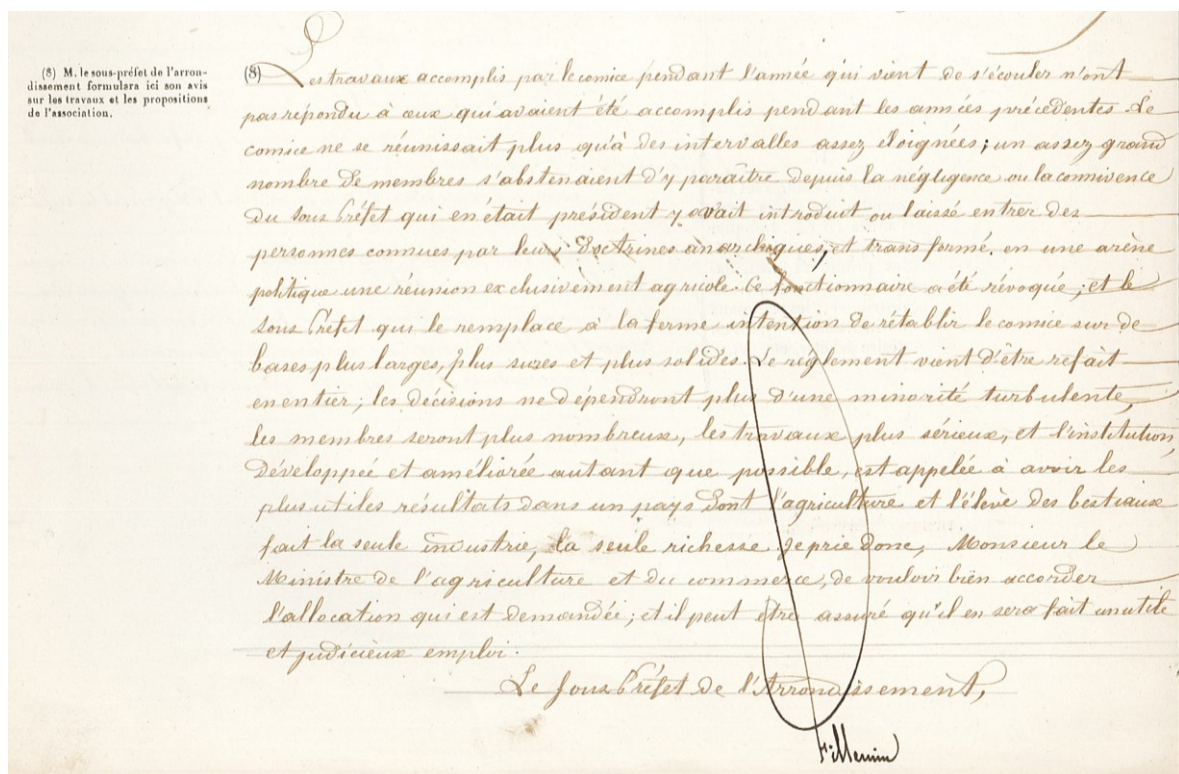 (8) M. le sous-préfet de l'arron-
dissement formulera ici son avis
sur les travaux et les propositions
de l'association.
(8) Les travaux accomplis par le comice pendant l'année qui vient de s'écouler n'ont
pas répondu à ceux qui avaient été accomplis pendant les années précédentes. Le
comice ne se réunissait plus qu'à des intervalles assez éloignées; un assez grand
nombre de membres s'abstenaient d'y paraître depuis la négligence ou la connivence
du sous Préfet qui en était président y avait introduit ou laissé entrer des
personnes connues par leurs doctrines anarchiques, et transformé, en une arène
politique une réunion exclusivement agricole. Ce fonctionnaire a été révoqué; et le
sous Préfet qui le remplace à la ferme intention de rétablir le comice sur de
bases plus larges, plus sures et plus solides. Le réglement vient d'être refait
en entier; les décisions ne dépendront plus d'une minorité turbulente,
les membres seront plus nombreux, les travaux plus sérieux, et l'institution,
développée et améliorée autant que possible, est appelée à avoir les
plus utiles résultats dans un pays dont l'agriculture et l'élève des bestiaux
fait la seule industrie, la seule richesse. Je prie donc, Monsieur le
Ministre de l'agriculture et du commerce, de vouloir bien accorder
l'allocation qui est demandée; et il peut être assuré qu'il en sera fait un utile
et judicieux emploi.
Le Sous Préfet de l'Arrondissement,